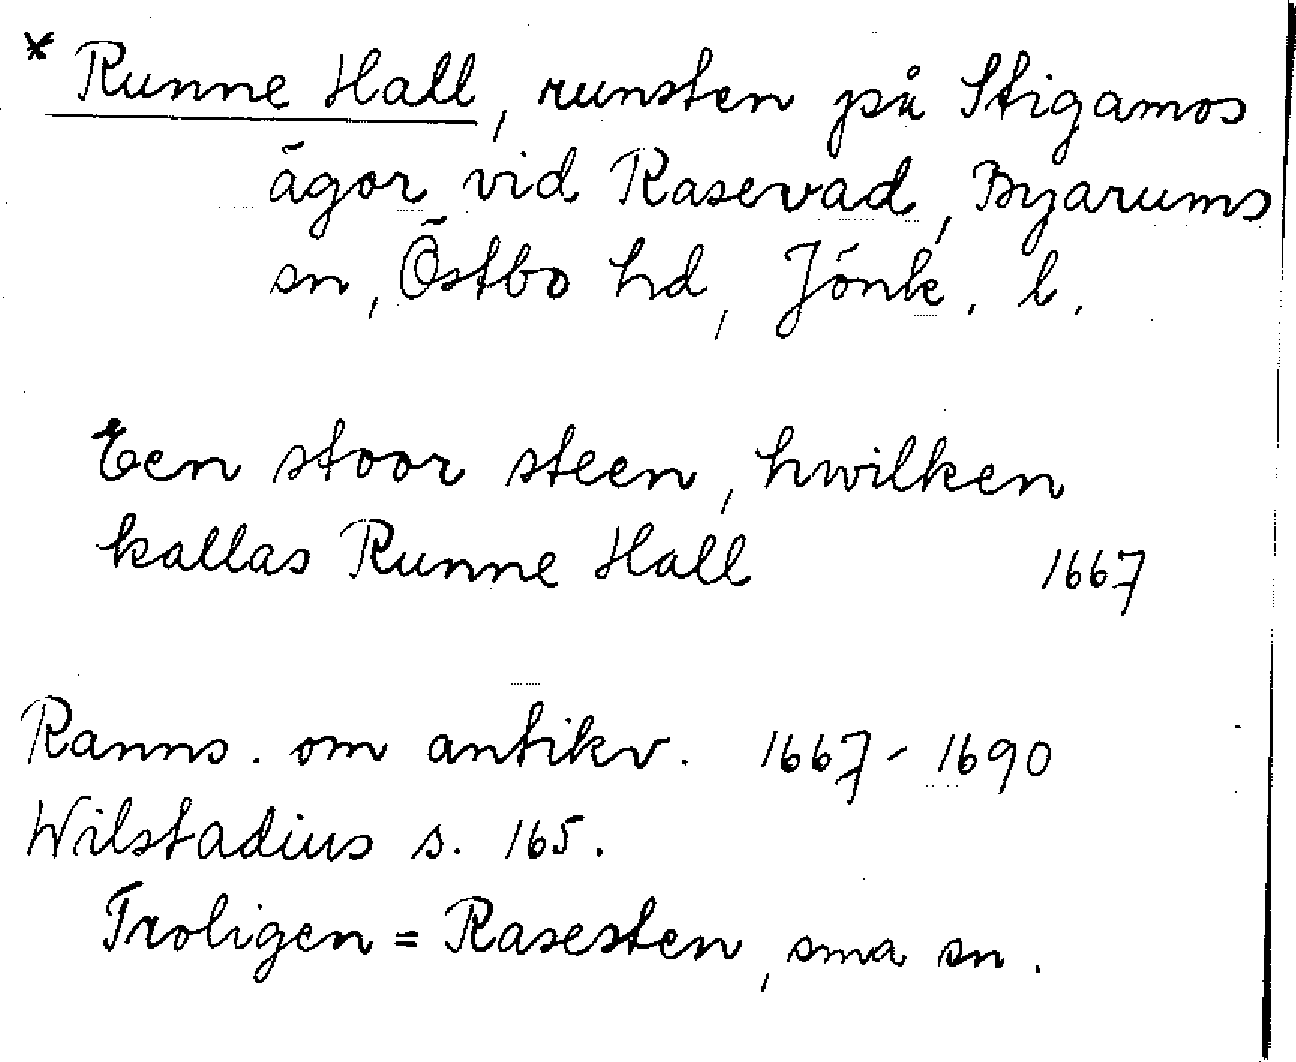 * Runne Hall, runsten på Stigamos
ägor vid Rasevad, Byarums
sn, Östbo hd, Jönk. l.
Een stoor steen, hwilken
kallas Runne Hall 1667
Ranns. om antikv. 1667-1690
Wilstadius s. 165.
Troligen = Rasesten, sma sn.